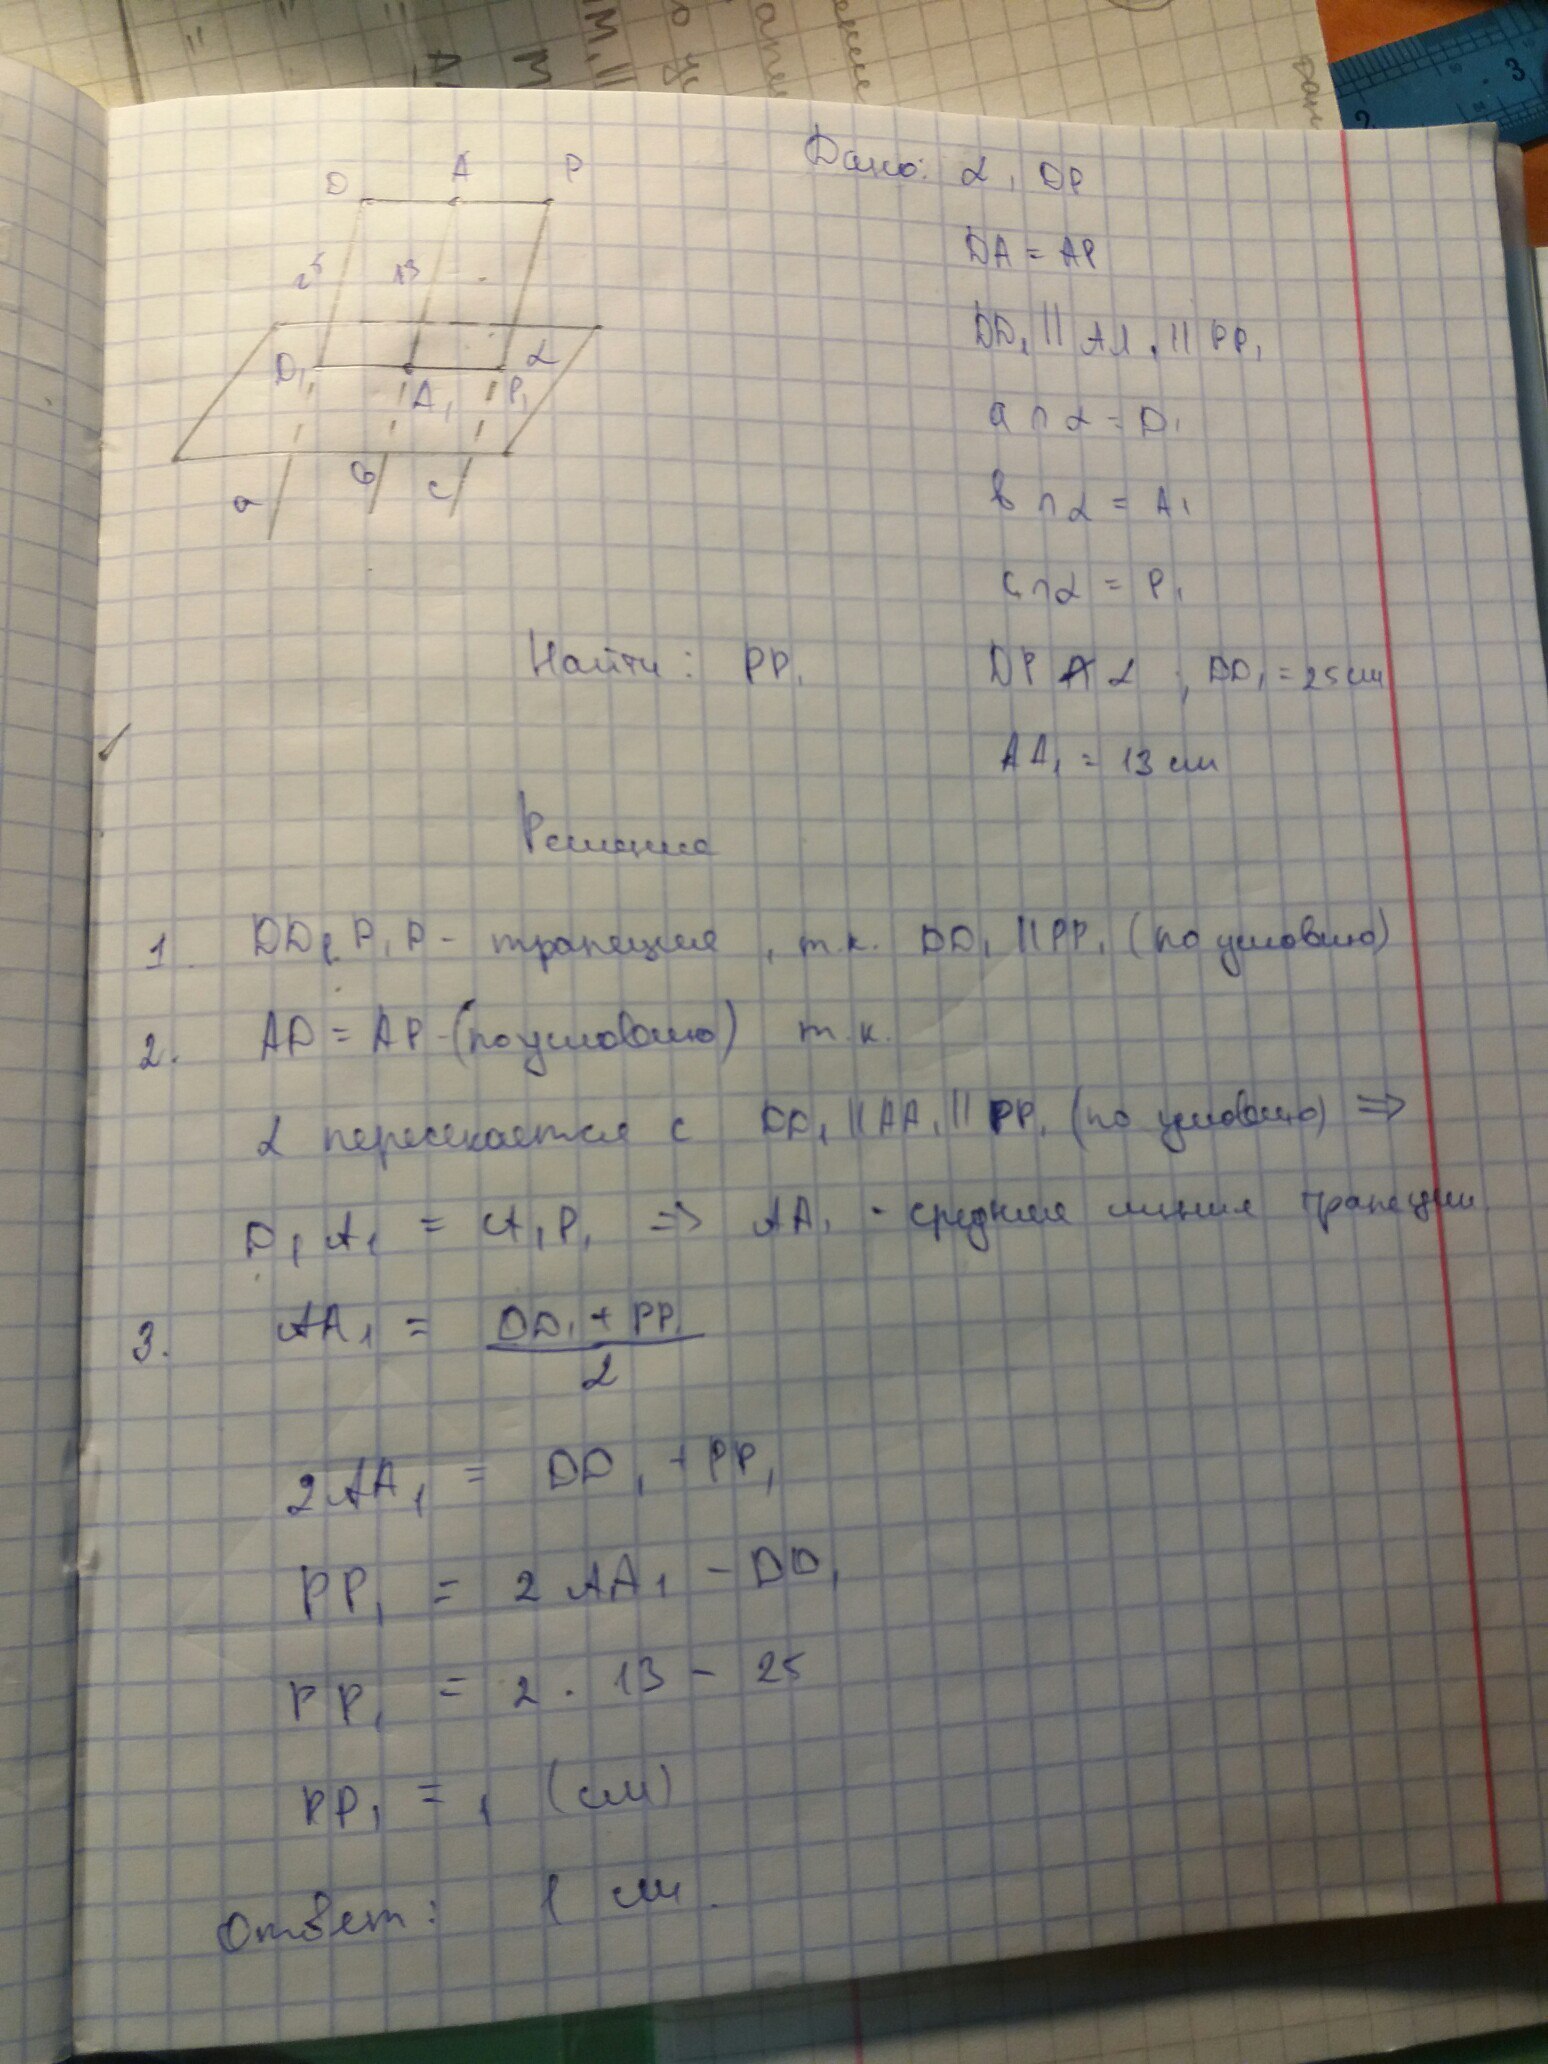 D A P
25 13
D₁ A₁ P₁ α
a в c
Дано: α, DP
DA = AP
DD₁ || AA₁ || PP₁
a ∩ α = D₁
в ∩ α = A₁
c ∩ α = P₁
Найти: PP₁ DP ∩ α ; DD₁ = 25 см
AA₁ = 13 см
Решение
1. DD₁P₁P - трапеция, т.к. DD₁ || PP₁ (по условию)
2. AD = AP - (по условию) т.к.
α пересекается с DD₁ || AA₁ || PP₁ (по условию) =>
D₁A₁ = A₁P₁ => AA₁ - средняя линия трапеции
3. AA₁ = (DD₁ + PP₁)/2
2AA₁ = DD₁ + PP₁
PP₁ = 2AA₁ - DD₁
PP₁ = 2 · 13 - 25
PP₁ = 1 (см)
Ответ: 1 см.